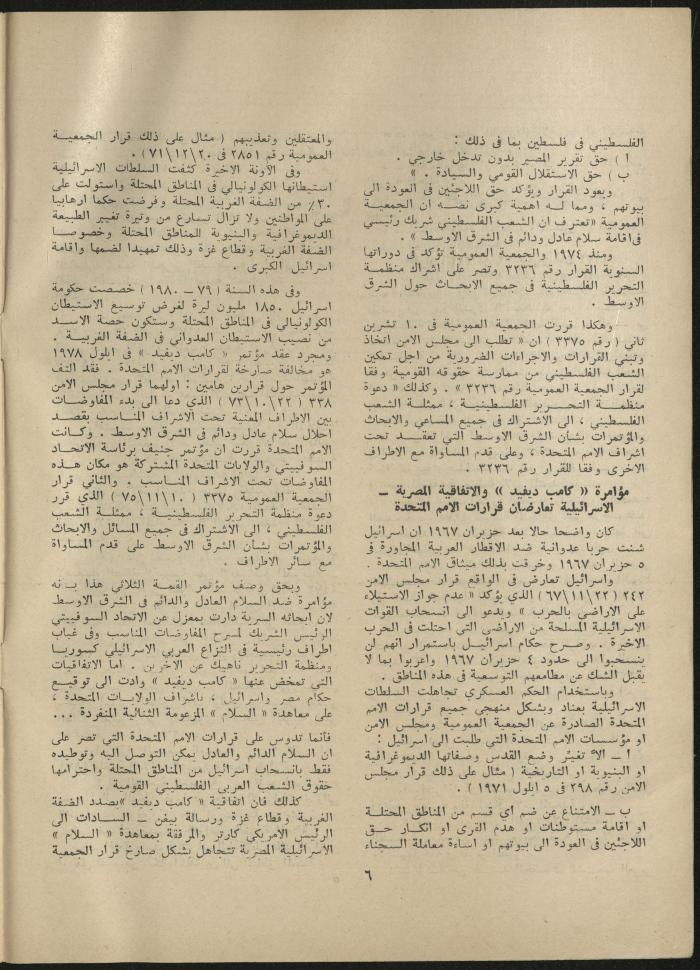 الفلسطيني في فلسطين بما في ذلك :
ا ) حق تقرير المصير بدون تدخل خارجي .
ب ) حق الاستقلال القومي والسيادة . »
ويعود القرار ويؤكد حق اللاجئين في العودة الى
بيوتهم ، ومما لــه اهمية كبرى نصـه ان الجمعيـة
العمومية «تعترف ان الشعب الفلسطيني شريك رئيسي
في اقامة سلام عادل ودائم في الشرق الاوسط » .
ومنذ ١٩٧٤ والجمعية العمومية تؤكد في دوراتها
السنوية القرار رقم ٣٢٣٦ وتصر على اشراك منظمـة
التحرير الفلسطينية في جميع الابحـاث حول الشرق
الاوسط .
وهكذا قررت الجمعية العمومية في ١٠ تشرين
ثاني ( رقم ٣٣٧٥ ) ان « تطلب الى مجلس الامن اتخاذ
وتبني القرارات والاجراءات الضرورية من اجل تمكين
الشعب الفلسطيني من ممارسة حقوقه القومية وفقا
لقرار الجمعية العمومية رقم ٣٢٣٦ » . وكذلك « دعوة
منظمــة التحــرير الفلسطينيــة ، ممثلـة الشعب
الفلسطيني ، الى الاشتراك في جميع المساعي والابحاث
والمؤتمرات بشأن الشرق الاوسط التي تعقــد تحت
اشراف الامم المتحدة ، وعلى قدم المساواة مع الاطراف
الاخرى وفقا للقرار رقم ٣٢٣٦ .
مؤامرة « كامب ديفيد » والاتفاقية المصرية ــ
الاسرائيلية تعارضان قرارات الامم المتحدة
كان واضحا حالا بعد حزيران ١٩٦٧ ان اسرائيل
شنت حربا عدوانية ضد الاقطار العربية المجاورة في
٥ حزيران ١٩٦٧ وخرقت بذلك ميثاق الامم المتحدة .
واسرائيل تعارض في الواقع قرار مجلس الامن
٢٤٢ ( ٦٧\١١\٢٢ ) الذي يؤكد « عدم جواز الاستيلاء
على الاراضي بالحرب » ويدعو الى انسحاب القوات
الاسرائيلية المسلحة من الاراضي التي احتلت في الحرب
الاخيرة . وصــرح حكام اسرائيــل باستمرار انهم لن
ينسحبوا الى حدود ٤ حزيران ١٩٦٧ واعربوا بما لا
يقبل الشك عن مطامعهم التوسعية في هذه المناطق .
وباستخدام الحكم العسكري تجاهلت السلطات
الاسرائيلية بعناد وبشكل منهجي جميع قرارات الامم
المتحدة الصادرة عن الجمعية العمومية ومجلس الامن
او مؤسسات الامم المتحدة التي طلبت الى اسرائيل :
أ ــ الاّ تغيّر وضع القدس وصفاتها الديموغرافية
او البنيوية او التاريخية ( مثال على ذلك قرار مجلس
الامن رقم ٢٩٨ في ٥ ايلول ١٩٧١ ) .
ب ــ الامتناع عن ضم اي قسم من المناطق المحتلـة
او اقامة مستوطنات او هدم القرى او انكـار حـق
اللاجئين في العودة الى بيوتهم او اساءة معاملة السجناء
والمعتقلين وتعذيبهم ( مثال على ذلك قرار الجمعيــة
العمومية رقم ٢٨٥١ في ٧١\١٢\٢٠ ) .
وفي الآونة الاخيرة كثفت السلطات الاسرائيلية
استيطانها الكولونيالي في المناطق المحتلة واستولت على
٣٠٪ من الضفة الغربية المحتلة وفرضت حكما ارهابيا
على المواطنين ولا تزال تسارع من وتيرة تغيير الطبيعة
الديموغرافية والبنيوية للمناطق المحتلة وخصوصـا
الضفة الغربية وقطاع غزة وذلك تمهيدا لضمها واقامة
اسرائيل الكبرى .
وفي هذه السنة ( ٧٩ ــ ١٩٨٠ ) خصصت حكومة
اسرائيل ١٨٥٠ مليون ليرة لغرض توسيع الاستيطان
الكولونيالي في المناطق المحتلة وستكون حصة الاســد
من نصيب الاستيطان العدواني في الضفة الغربيـة .
ومجرد عقد مؤتمر « كامب ديفيد » في ايلول ١٩٧٨
هو مخالفة صارخة لقرارات الامم المتحدة . فقد التف
المؤتمر حول قرارين هامين : اولهما قرار مجلس الامن
٣٣٨ ( ٧٣\١٠\٢٢ ) الذي دعا الى بدء المفاوضـات
بين الاطراف المعنية تحت الاشراف المنـاسب بقصـد
احلال سلام عادل ودائم في الشرق الاوسط . وكـانت
الامم المتحدة قررت ان مؤتمر جنيف برئاسة الاتحـاد
السوفييتي والولايات المتحدة المشتركة هو مكان هـذه
المفاوضات تحت الاشراف المناسـب . والثاني قرار
الجمعية العمومية ٣٣٧٥ ( ٧٥\١١\١٠ ) الذي قرر
دعوة منظمة التحرير الفلسطينيــة ، ممثلـة الشعب
الفلسطيني ، الى الاشتراك في جميع المسائل والابحاث
والمؤتمرات بشأن الشرق الاوسط على قدم المساواة
مع سائر الاطراف .
وبحق وصف مؤتمر القمـة الثلاثي هذا بـأنه
مؤامرة ضد السلام العادل والدائم في الشرق الاوسط
لان ابحاثه السرية دارت بمعزل عن الاتحاد السوفييتي
الرئيس الشريك لمسرح المفاوضات المناسب وفي غياب
اطراف رئيسية في النزاع العربي الاسرائيلي كسوريـا
ومنظمة التحرير ناهيك عن الآخرين . اما الاتفاقيات
التي تمخض عنها « كامب ديفيد » وادت الى توقيـع
حكام مصر واسرائيل ، باشراف الولايـات المتحدة ،
على معاهدة « السلام » المزعومة الثنائية المنفردة ...
فانما تدوس على قرارات الامم المتحدة التي تصر على
ان السلام الدائم والعادل يمكن التوصل اليه وتوطيده
فقط بانسحاب اسرائيل من المناطق المحتلة واحترامها
حقوق الشعب العربي الفلسطيني القومية .
كذلك فان اتفاقية « كامب ديفيد »بصدد الضفة
الغربية وقطاع غزة ورسالة بيغن ــ السـادات الى
الرئيس الامريكي كارتر والمرفقة بمعاهدة « السلام »
الاسرائيلية المصرية تتجاهل بشكل صارخ قرار الجمعية
٦